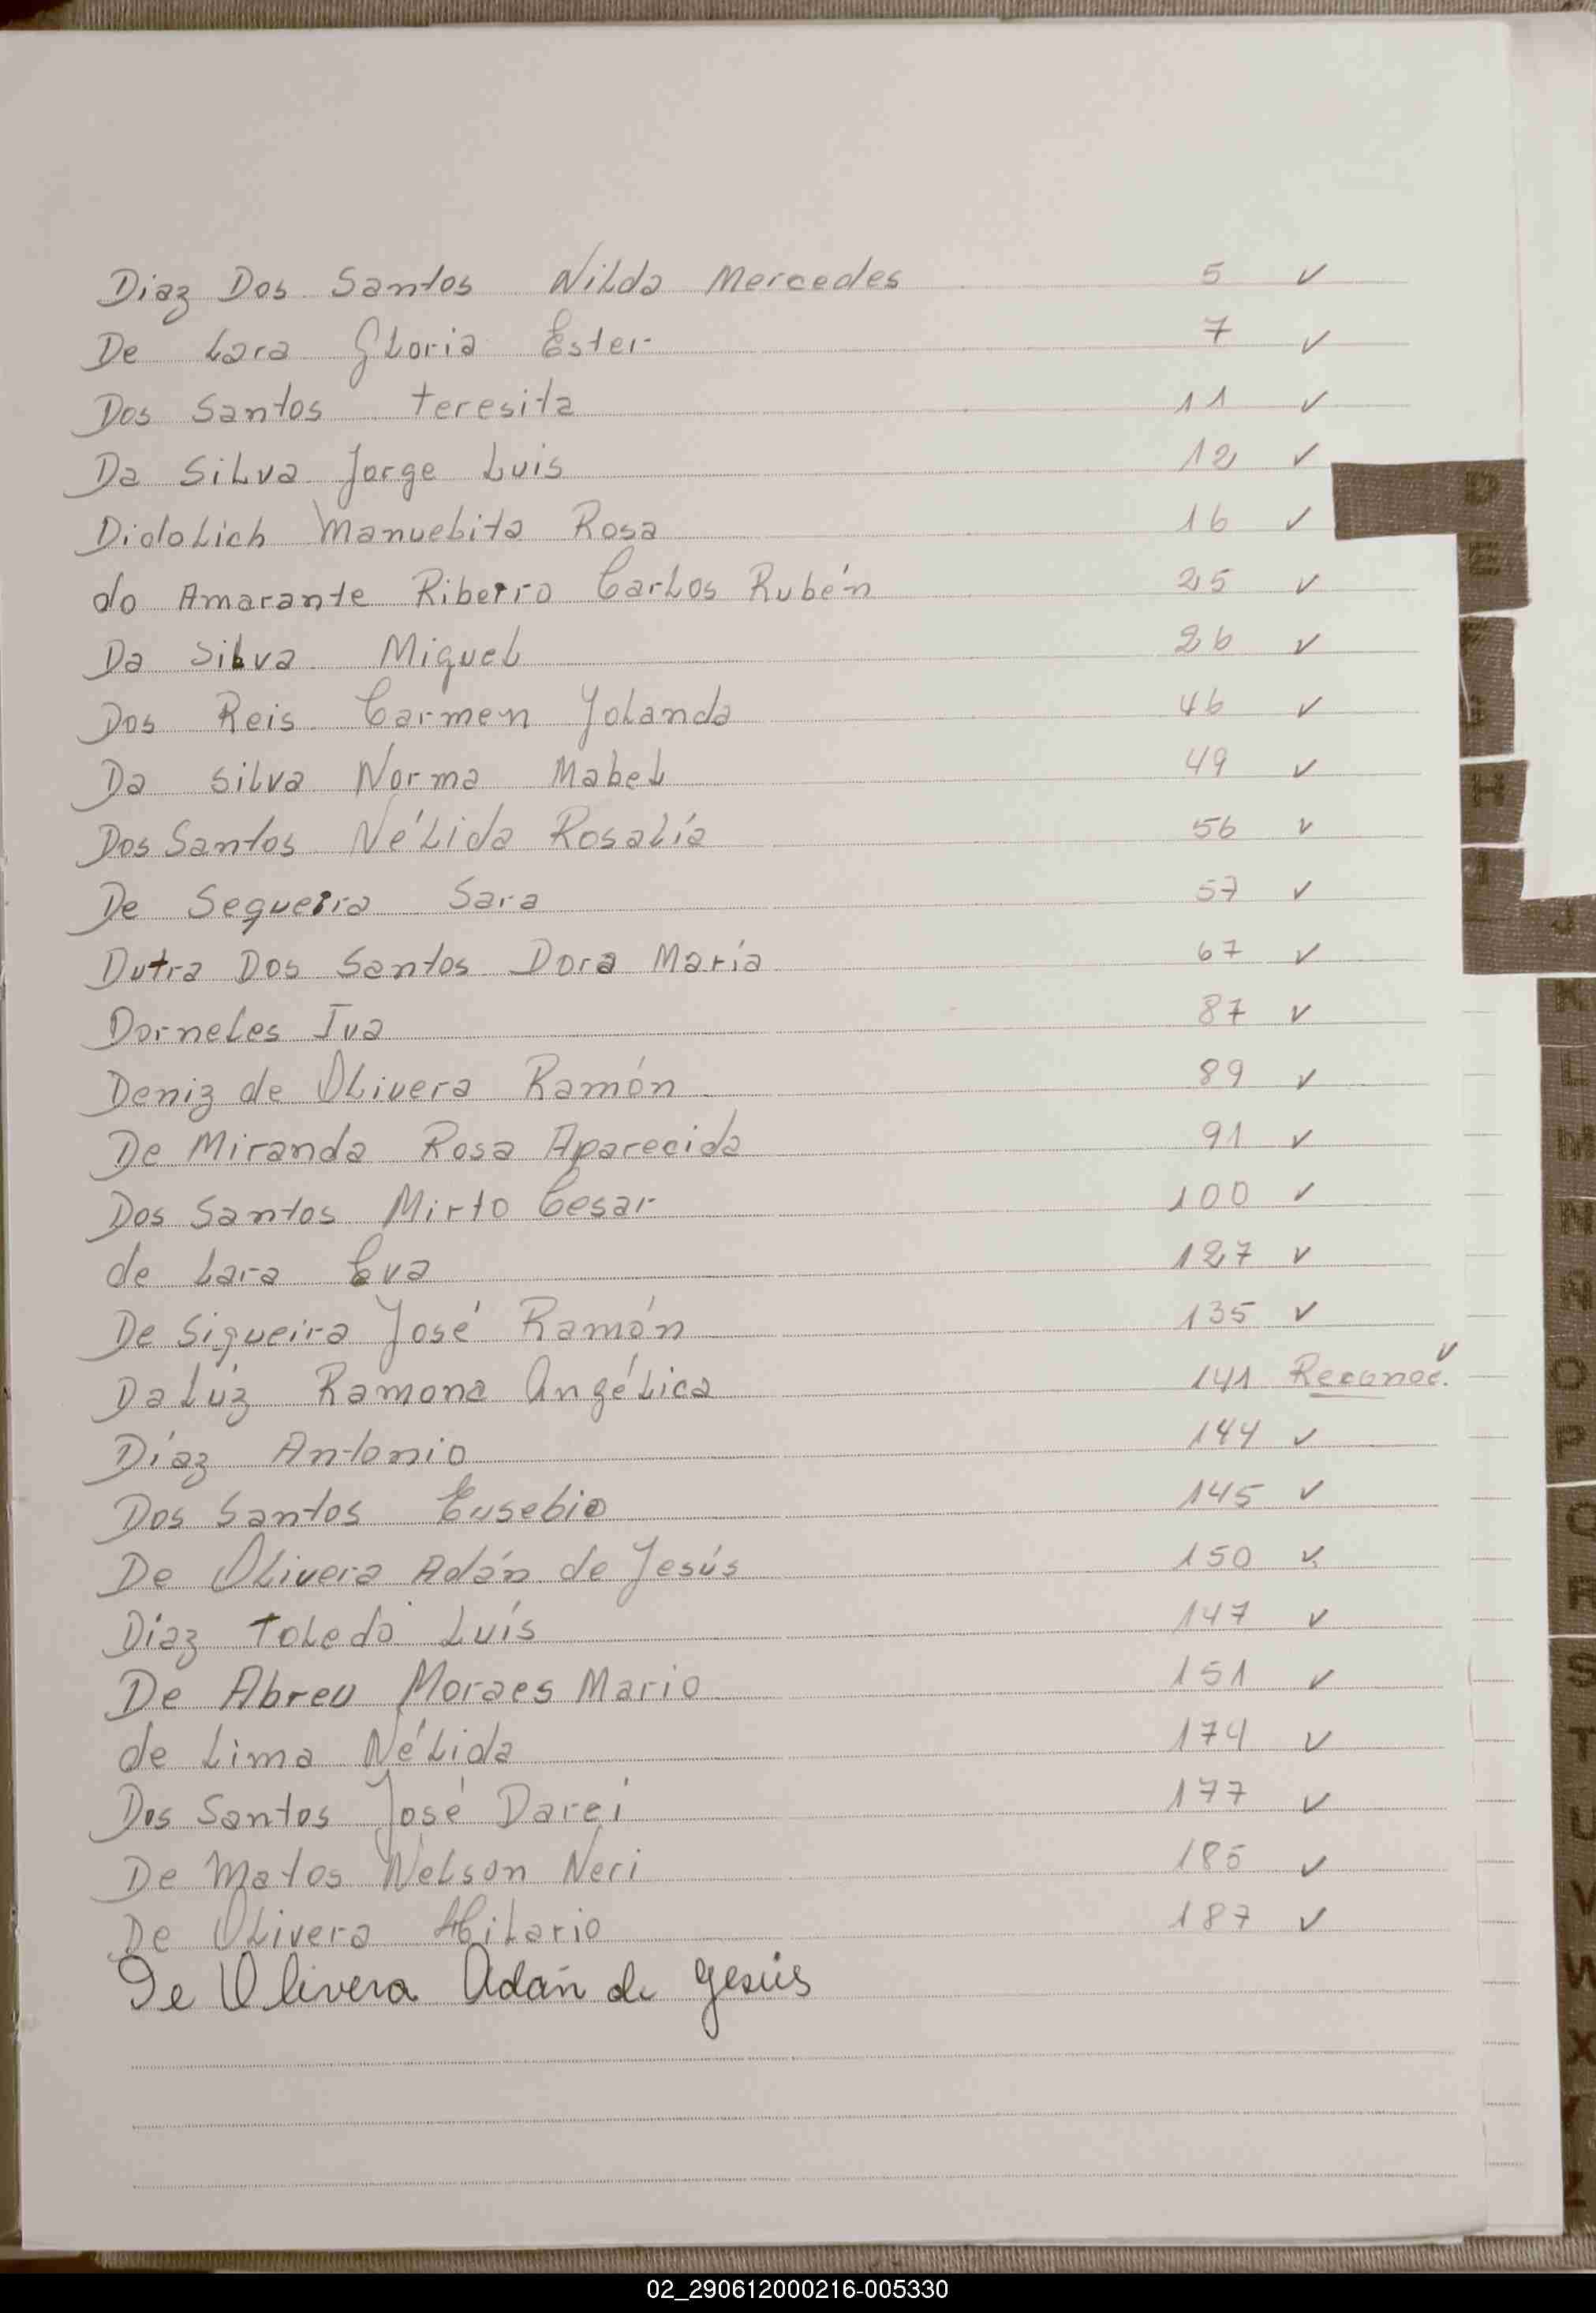 Diaz Dos Santos Nilda Mercedes 5 ✓
De Lara Gloria Ester 7 ✓
Dos Santos Teresita 11 ✓
Da Silva Jorge Luis 12 ✓
Didolich Manuelita Rosa 16 ✓
do Amarante Ribeiro Carlos Rubén 25 ✓
Da Silva Miguel 26 ✓
Dos Reis Carmen Yolanda 46 ✓
Da Silva Norma Mabel 49 ✓
Dos Santos Nélida Rosalía 56 ✓
De Sequeira Sara 57 ✓
Dutra Dos Santos Dora María 67 ✓
Dorneles Iva 87 ✓
Deniz de Olivera Ramón 89 ✓
De Miranda Rosa Aparecida 91 ✓
Dos Santos Mirto Cesar 100 ✓
de Lara Eva 127 ✓
De Siqueira José Ramón 135 ✓
Da Lúz Ramona Angélica 141 Reconoc. ✓
Díaz Antonio 144 ✓
Dos Santos Eusebio 145 ✓
De Olivera Adán de Jesús 150 ✓
Díaz Toledo Luís 147 ✓
De Abreu Moraes Mario 151 ✓
de Lima Nélida 174 ✓
Dos Santos José Darci 177 ✓
De Matos Nelson Neri 185 ✓
De Olivera Hilario 187 ✓
De Olivera Adán de Jesús
D
E
H
I
J
K
L
M
N
Ñ
O
P
Q
R
S
T
U
V
W
X
Y
Z
02_290612000216-005330